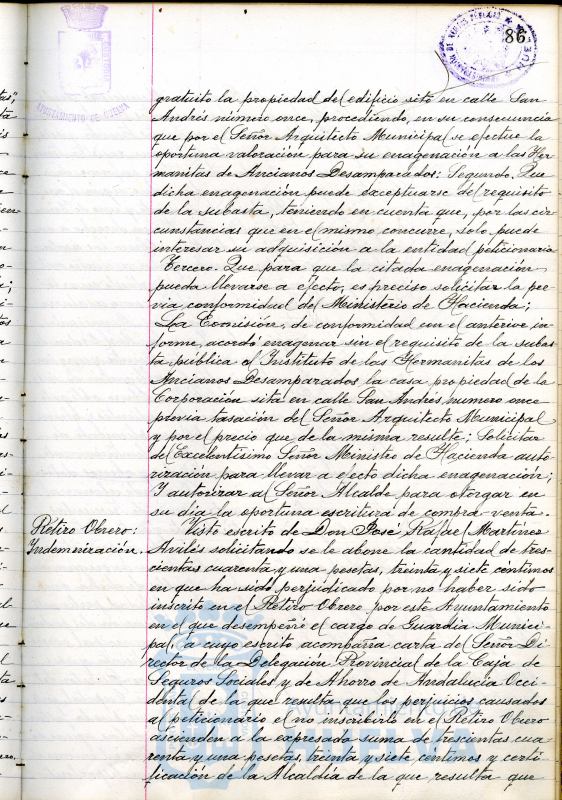 86
AYUNTAMIENTO DE HUELVA
gratuito la propiedad del edificio sito en calle San
Andrés número once, procediendo, en su consecuencia
que por el Señor Arquitecto Municipal se efectue la
oportuna valoración para su enagenación a las Her-
manitas de Ancianos Desamparados: Segundo. Que
dicha enagenación puede exceptuarse del requisito
de la subasta, teniendo en cuenta que, por las cir-
cunstancias que en el mismo concurre, solo puede
interesar su adquisición a la entidad peticionaria
Tercero. Que para que la citada enagenación
pueda llevarse a efecto, es preciso solicitar la pre-
via conformidad del Ministerio de Hacienda;
La Comisión, de conformidad con el anterior in-
forme, acordó enagenar sin el requisito de la subas-
ta pública al Instituto de las Hermanitas de los
Ancianos Desamparados la casa propiedad de la
Corporación sita en calle San Andrés, numero once
previa tasación del Señor Arquitecto Municipal
y por el precio que de la misma resulte; Solicitar
del Excelentísimo Señor Ministro de Hacienda auto-
rización para llevar a efecto dicha enagenación;
Y autorizar al Señor Alcalde para otorgar en
su día la oportuna escritura de compra-venta.
Retiro Obrero:
Indemnización.
Visto escrito de Don José Rafael Martínez
Avilés solicitando se le abone la cantidad de tres-
cientas cuarenta y una pesetas, treinta y siete céntimos
en que ha sido perjudicado por no haber sido
inscrito en el Retiro Obrero por este Ayuntamiento
en el que desempeñó el cargo de Guardia Munici-
pal, a cuyo escrito acompaña carta del Señor Di-
rector de la Delegación Provincial de la Caja de
Seguros Sociales y de Ahorro de Andalucía Occi-
dental de la que resulta que los perjuicios causados
al peticionario el no inscribirlo en el Retiro Obrero
ascienden a la expresada suma de trescientas cua-
renta y una pesetas, treinta y siete centimos y certi-
ficación de la Alcaldía de la que resulta que
Ayuntamiento de
HUELVA